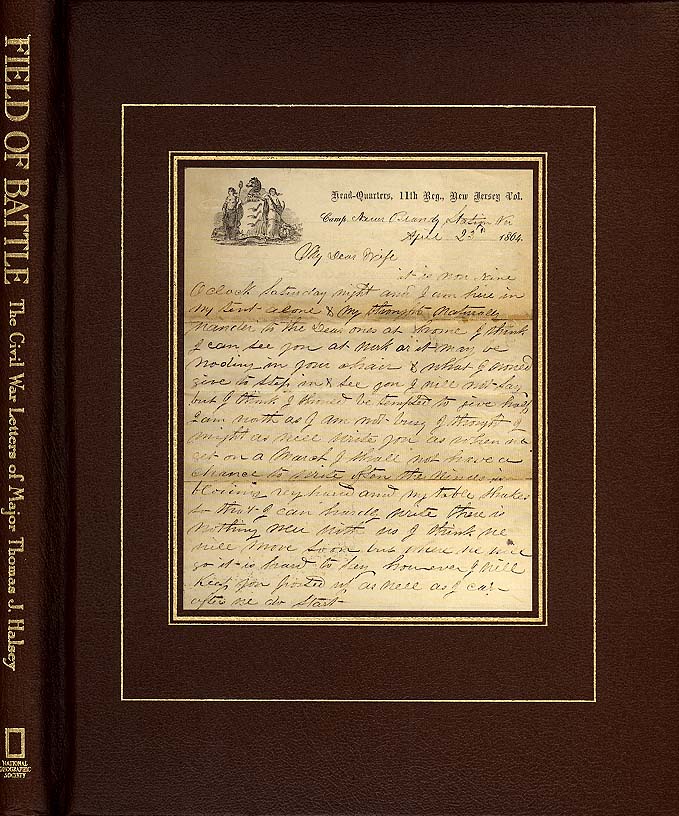 FIELD OF BATTLE The Civil War Letters of Major Thomas J. Halsey
NATIONAL
GEOGRAPHIC
SOCIETY
Head-Quarters, 11th Reg., New Jersey Vol.
Camp Near Brandy Station Va
April 23d 1864.
My Dear Wife
it is now nine
O clock Saturday night and I am here in
my tent alone & my thoughts naturally
wander to the Dear ones at home I think
I can see you at work or it may be
noding in your chair & what I would
give to step in & see you I will not say
but I think I should be tempted to give half
I am worth as I am not busy I thought I
might as well write you as when we
get on a March I shall not have a
chance to write often the wind is
blowing very hard and my table shakes
so that I can hardly write there is
nothing new with us I think we
will move soon but where we will
go it is hard to say however I will
Keep you posted up as well as I can
after we do start